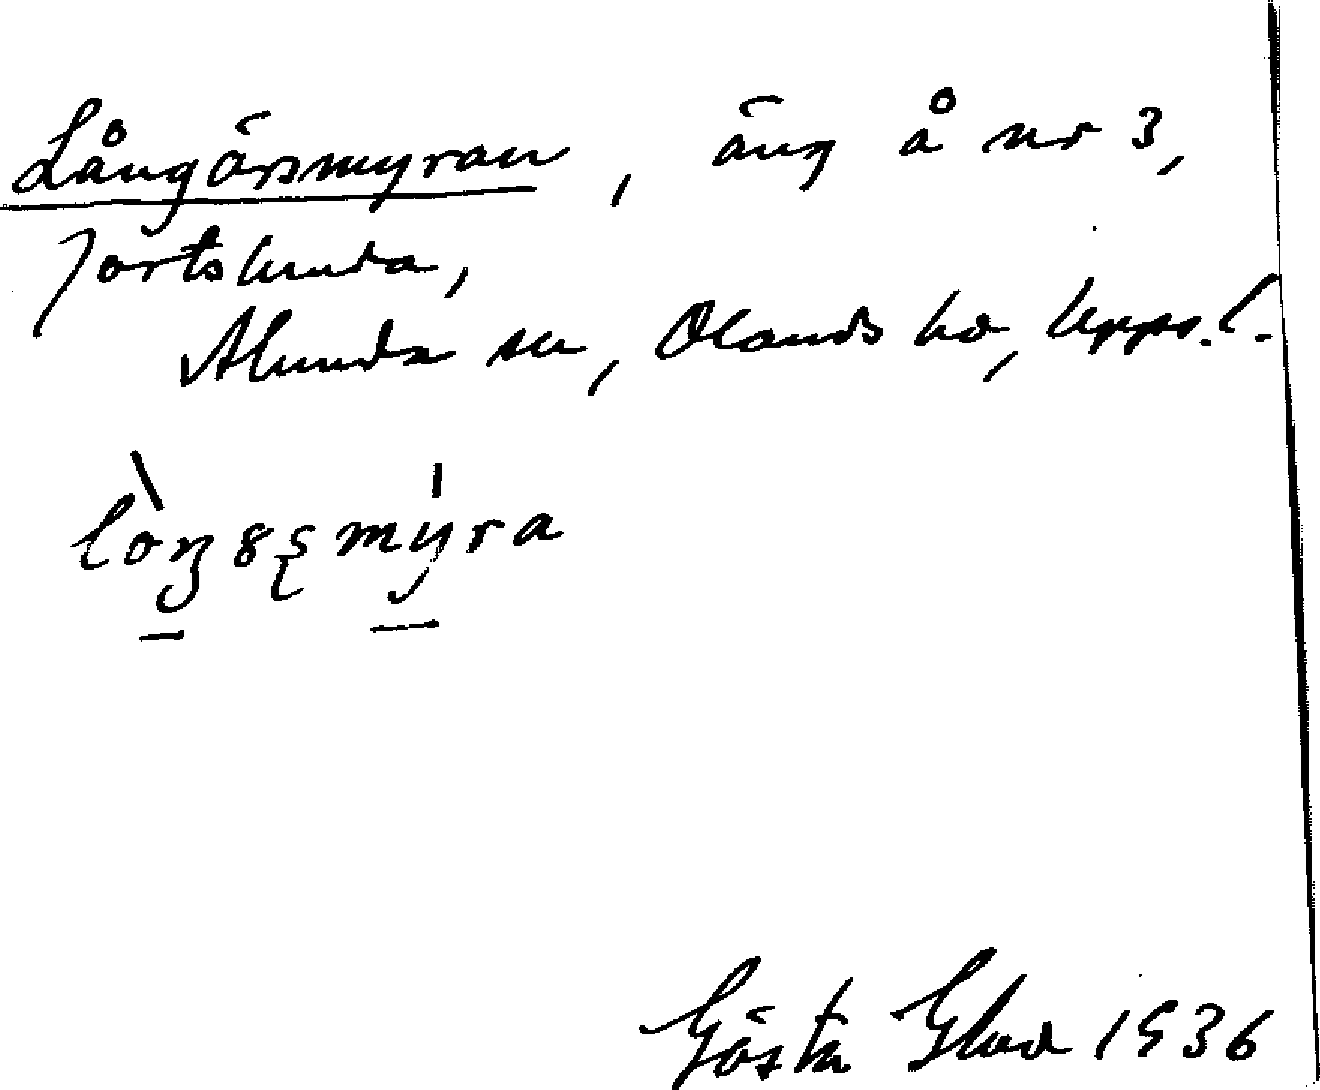 Långörsmyran, äng å nr 3,
Jörtslunda,
Alunda sn, Olands hd, Upps. l.
Gösta Glad 1936